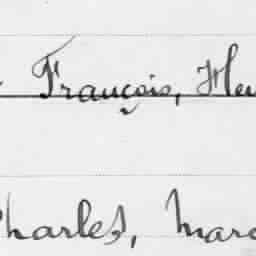 François, Hen
Charles, Marc